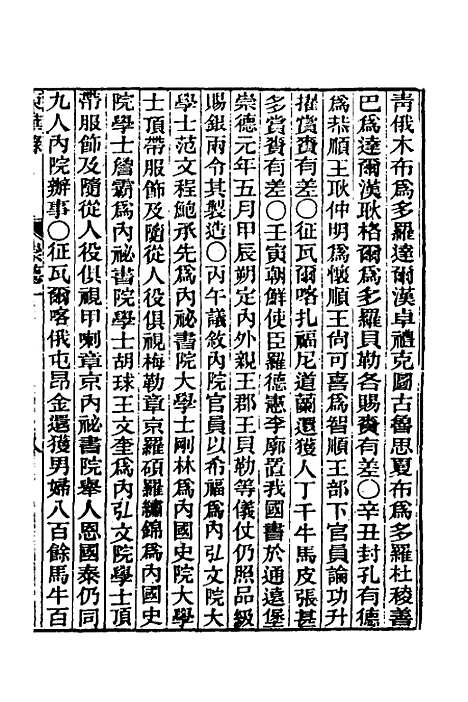 青俄木布爲多羅達爾漢卓禮克圖古魯思夏布爲多羅杜稜善
巴爲達爾漢耿格爾爲多羅貝勒各賜賚有差○辛丑封孔有德
爲恭順王耿仲明爲懷順王尙可喜爲智順王部下官員論功升
擢賞賚有差○征瓦爾喀扎福尼道蘭還獲人丁千牛馬皮張甚
多賞賚有差○壬寅朝鮮使臣羅德憲李廓置我國書於通遠堡
崇德元年五月甲辰朔定內外親王郡王貝勒等儀仗仍照品級
賜銀兩令其製造○丙午議敘內院官員以希福爲內弘文院大
學士范文程鮑承先爲內祕書院大學士剛林爲內國史院大學
士頂帶服飾及隨從人役俱視梅勒章京羅碩羅繡錦爲內國史
院學士詹霸爲內祕書院學士胡球王文奎爲內弘文院學士頂
帶服飾及隨從人役俱視甲喇章京內祕書院舉人恩國泰仍同
九人內院辦事○征瓦爾喀俄屯昂金還獲男婦八百餘馬牛百